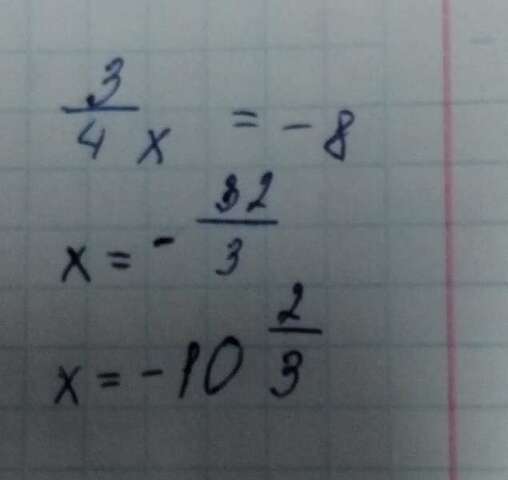 3/4 x = - 8
x = - 32/3
x = - 10 2/3